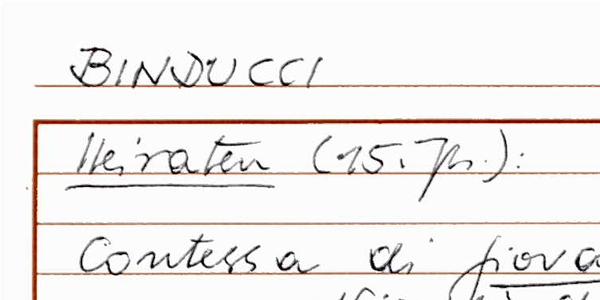 BINDUCCI
Heiraten (15. Jh.):
Contessa di giova